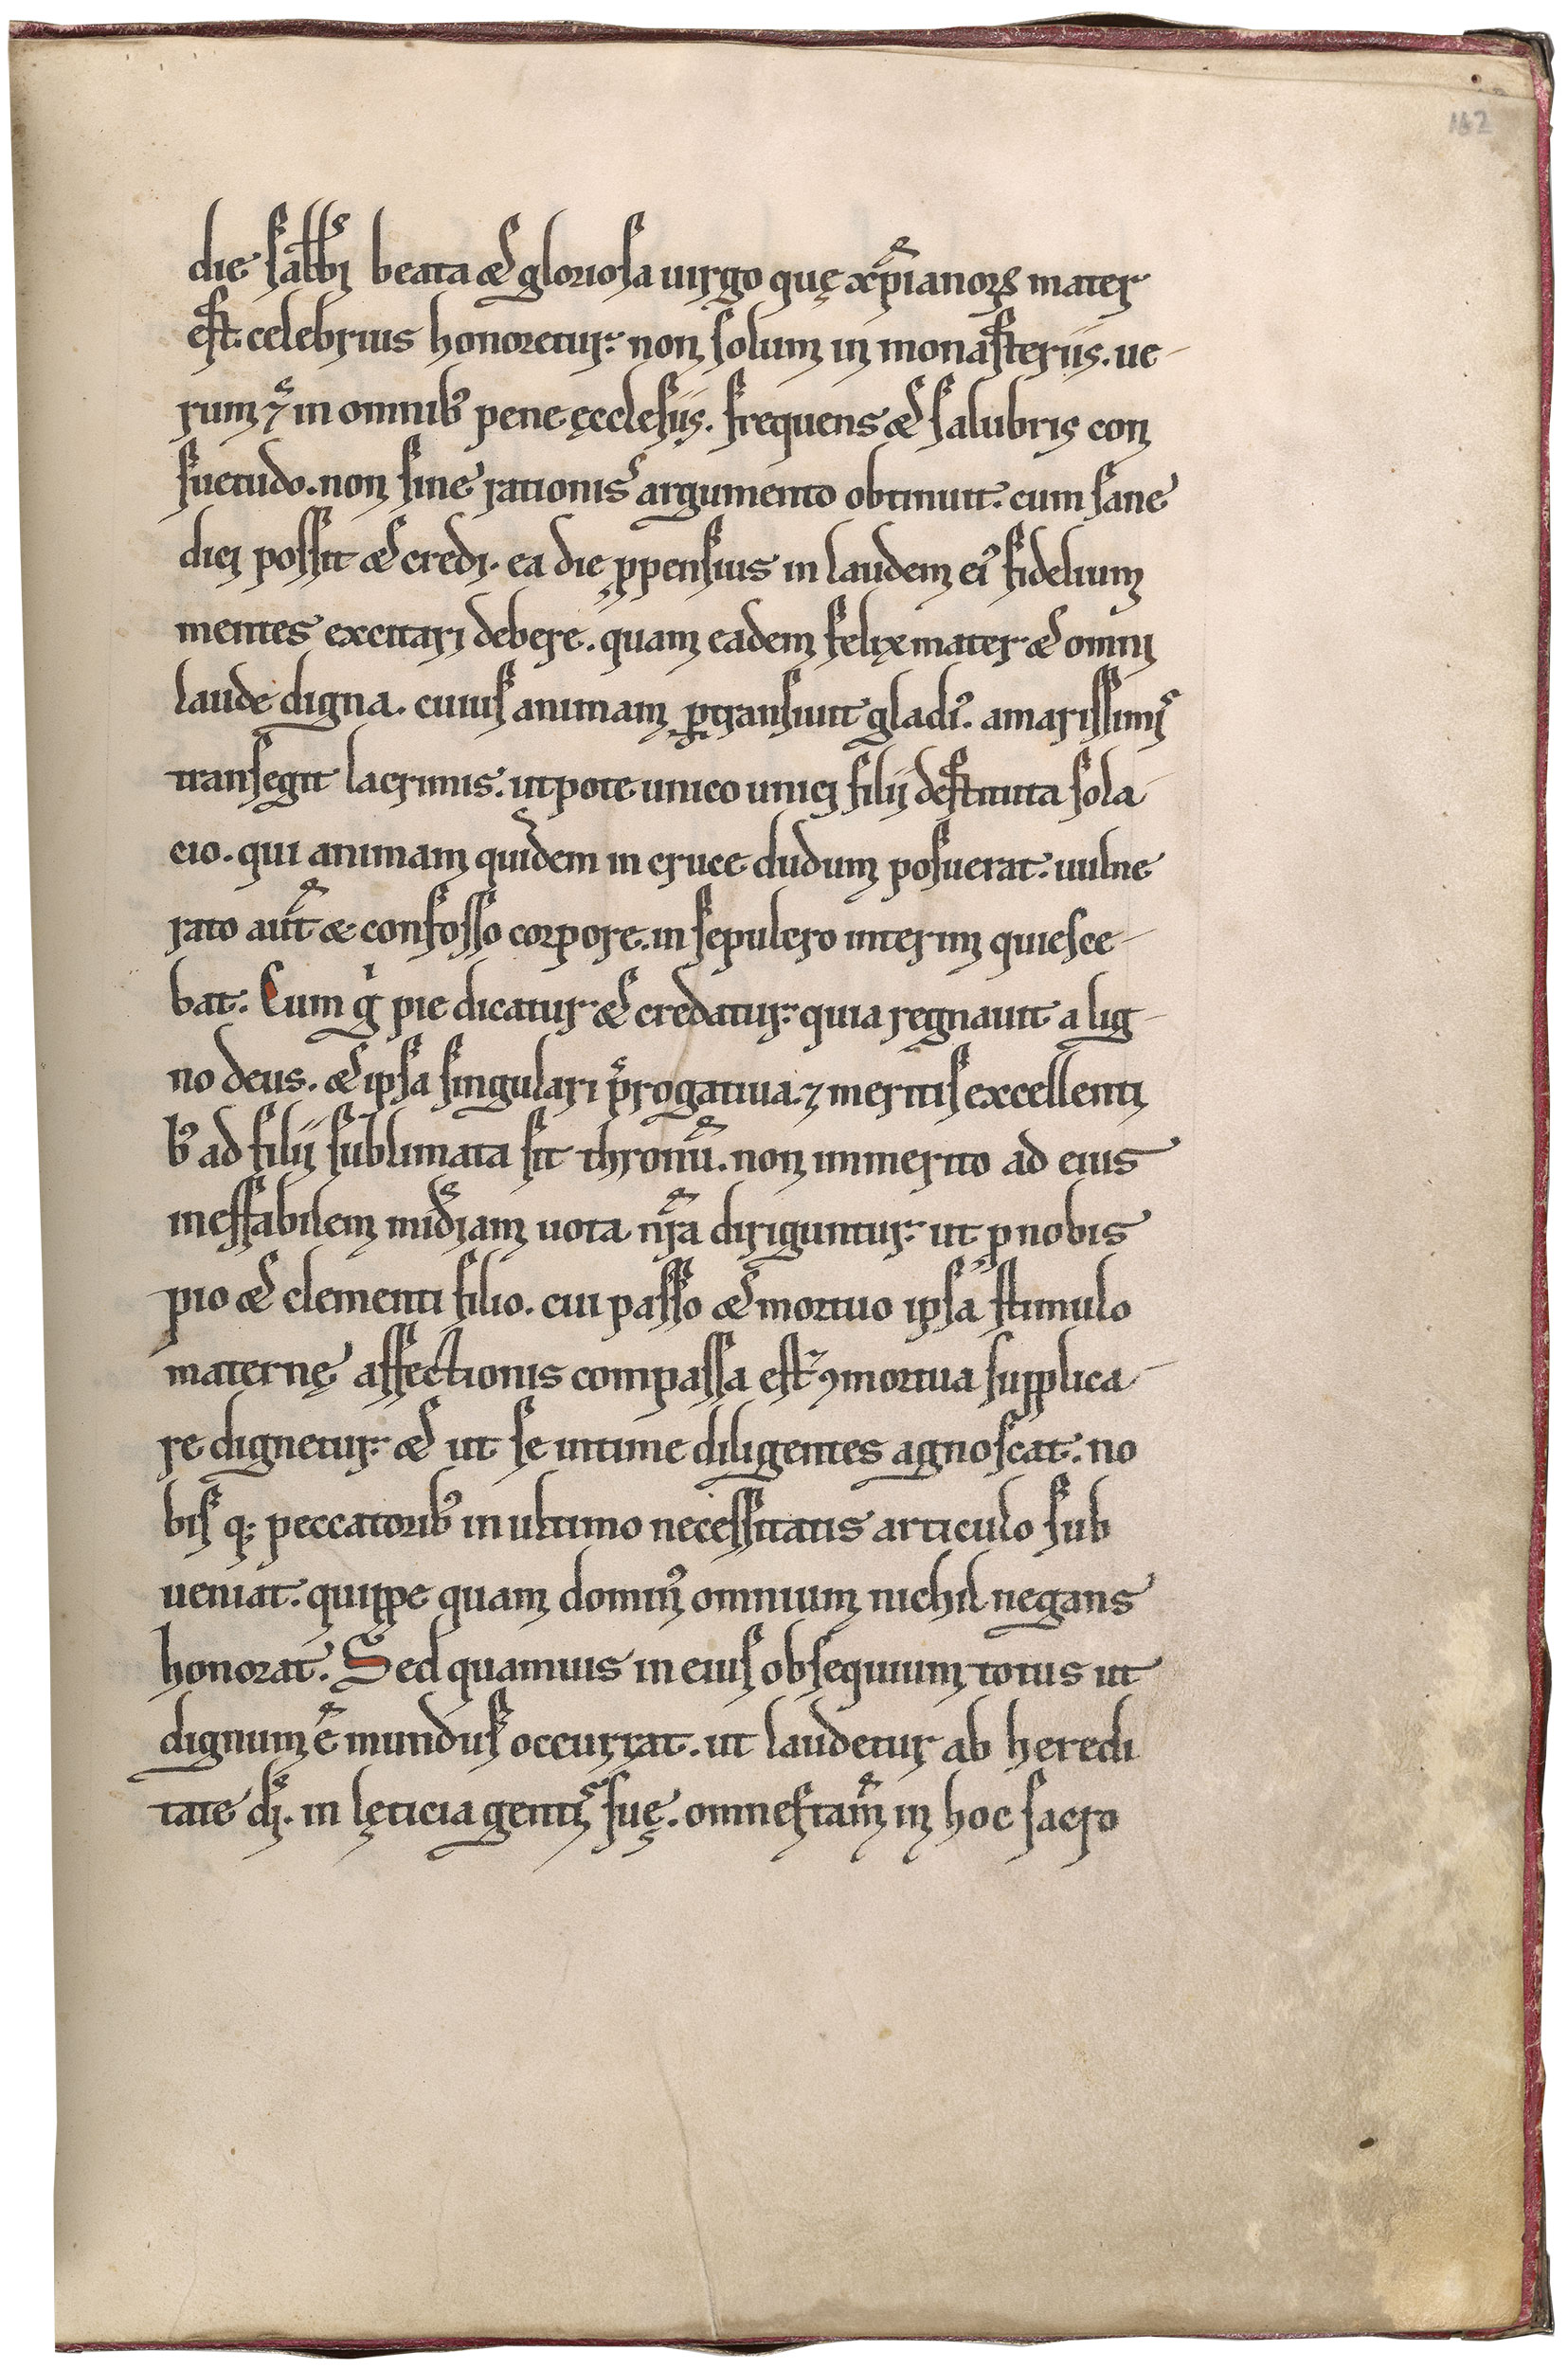 162
die sabb̄i beata & gloriosa uirgo quę xp̄ianoꝝ mater
est. celebrius honoretur: non solum in monasteriis. ue-
rum ⁊ in omnibꝰ pene ęcclesiis. frequens & salubris con
suetudo. non sine rationis argumento obtinuit. cum sane
dici possit & credi. ea die ꝓpensius in laudem eiꝰ fidelium
mentes excitari debere. quam eadem felix mater & omni
laude digna. cuius animam ꝑtransiuit gladiꝰ. amarissimis
transegit lacrimis. utpote unico unici filii destituta sola-
cio. qui animam quidem in cruce dudum posuerat. uulne
rato aut̄ & confosso corpore. in sepulcro interim quiesce-
bat. Cum gͥ pie dicatur & credatur: quia regnauit a lig-
no deus. & ipsa singulari p̄rogatiua. ⁊ meritis excellenti
bꝰ ad filii sublimata sit thronū. non immerito ad eius
ineffabilem mid̄iam uota nr̄a diriguntur: ut ꝓ nobis
pio & clementi filio. cui passo & mortuo ipsa stimulo
maternę affectionis compassa est ⁊ ꝯmortua supplica-
re dignetur: & ut se intime diligentes agnoscat. no
bis q; peccatoribꝰ in ultimo necessitatis articulo sub
ueniat. quippe quam dominꝰ omnium nichil negans
honorat. Sed quamuis in eius obsequium totus ut
dignum ē mundus occurrat. ut laudetur ab heredi
tate dī. in lęticia gentis suę. omnes tam̄ in hoc sacro